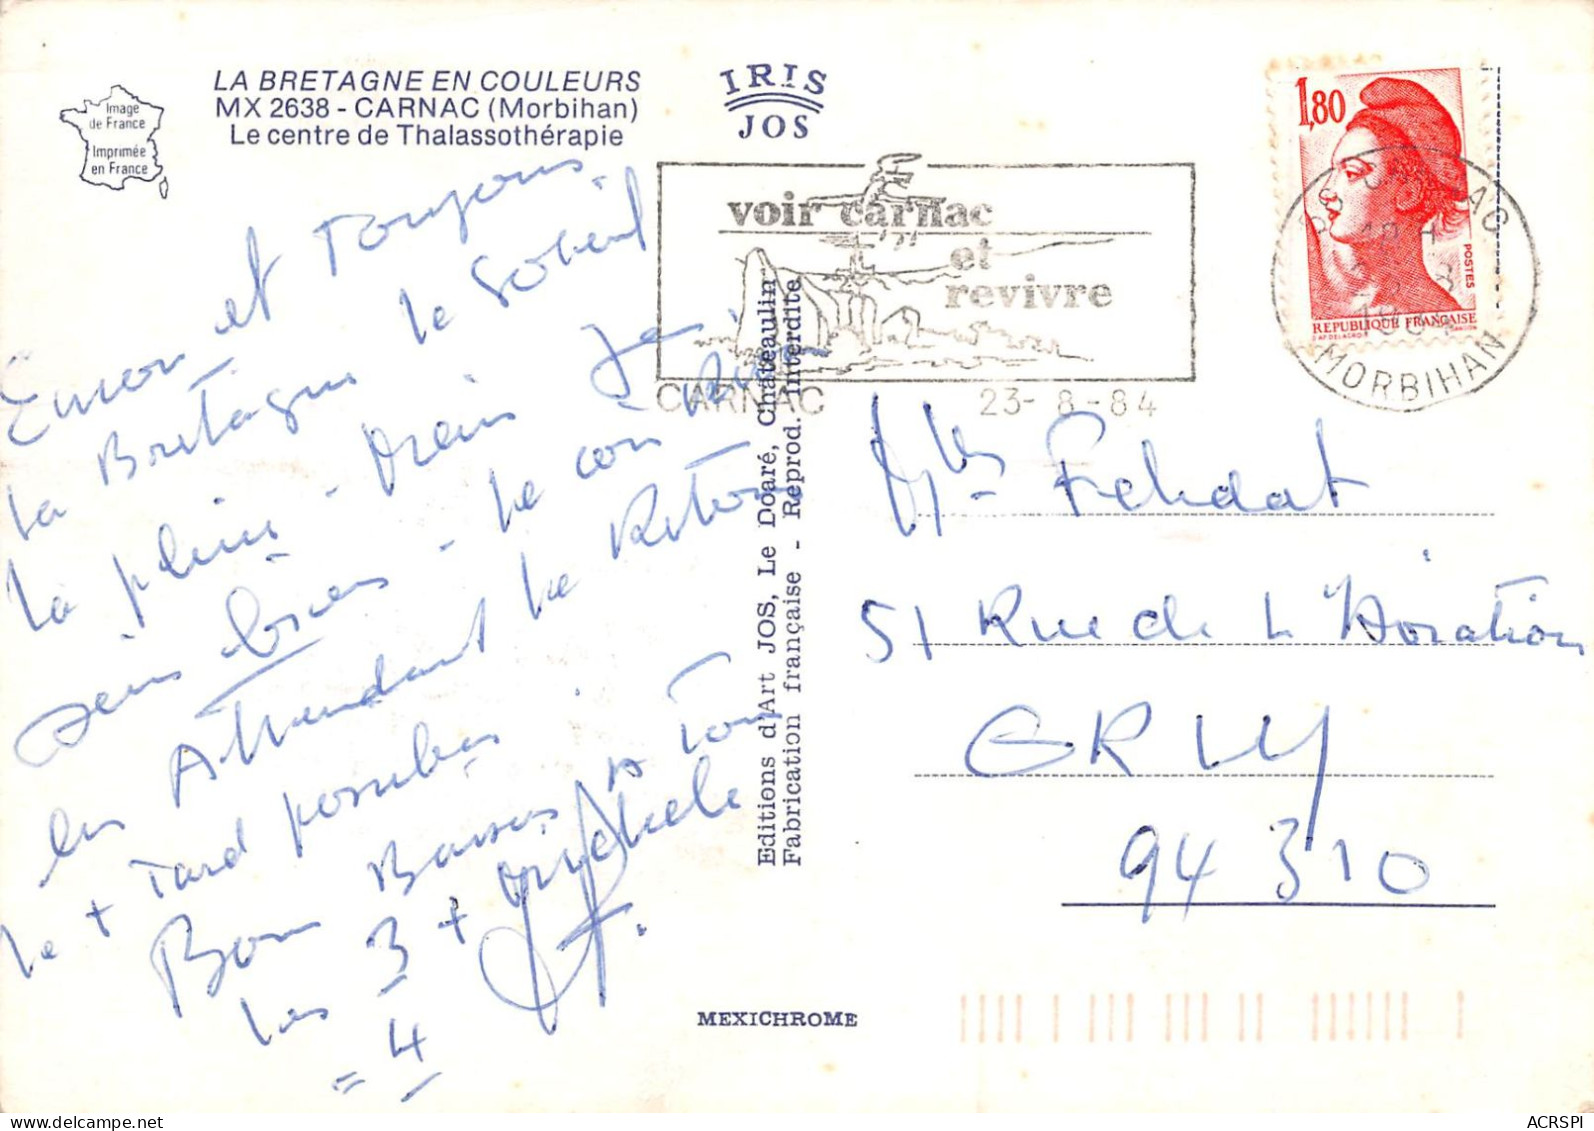 Image
de France
Imprimée
en France
LA BRETAGNE EN COULEURS
MX 2638 - CARNAC (Morbihan)
Le centre de Thalassothérapie
IRIS
JOS
voir carnac
et
revivre
CARNAC 23-8-84
1,80
POSTES
REPUBLIQUE FRANÇAISE
CARNAC
MORBIHAN
et Toujours
la Bretagne le Soleil
la pluie - mais
-
en Attendant le Retour
le + Tard possible
Bons Baisers à Tous
les 3 + Michele
= 4
Editions d'Art JOS, Le Doaré, Châteaulin
Fabrication française - Reprod. interdite
51 Rue de L
ORLY
94310
MEXICHROME
ACRSPI